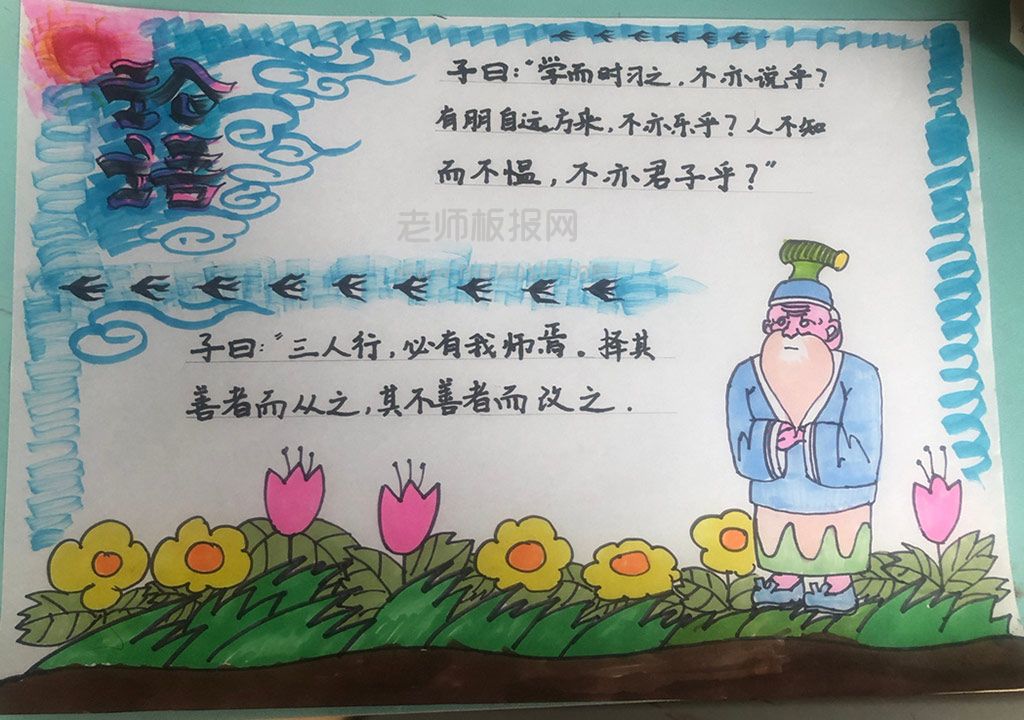 论语
子曰:“学而时习之,不亦说乎?
有朋自远方来,不亦乐乎?人不知
而不愠,不亦君子乎?”
老师板报网
子曰:“三人行,必有我师焉。择其
善者而从之,其不善者而改之.